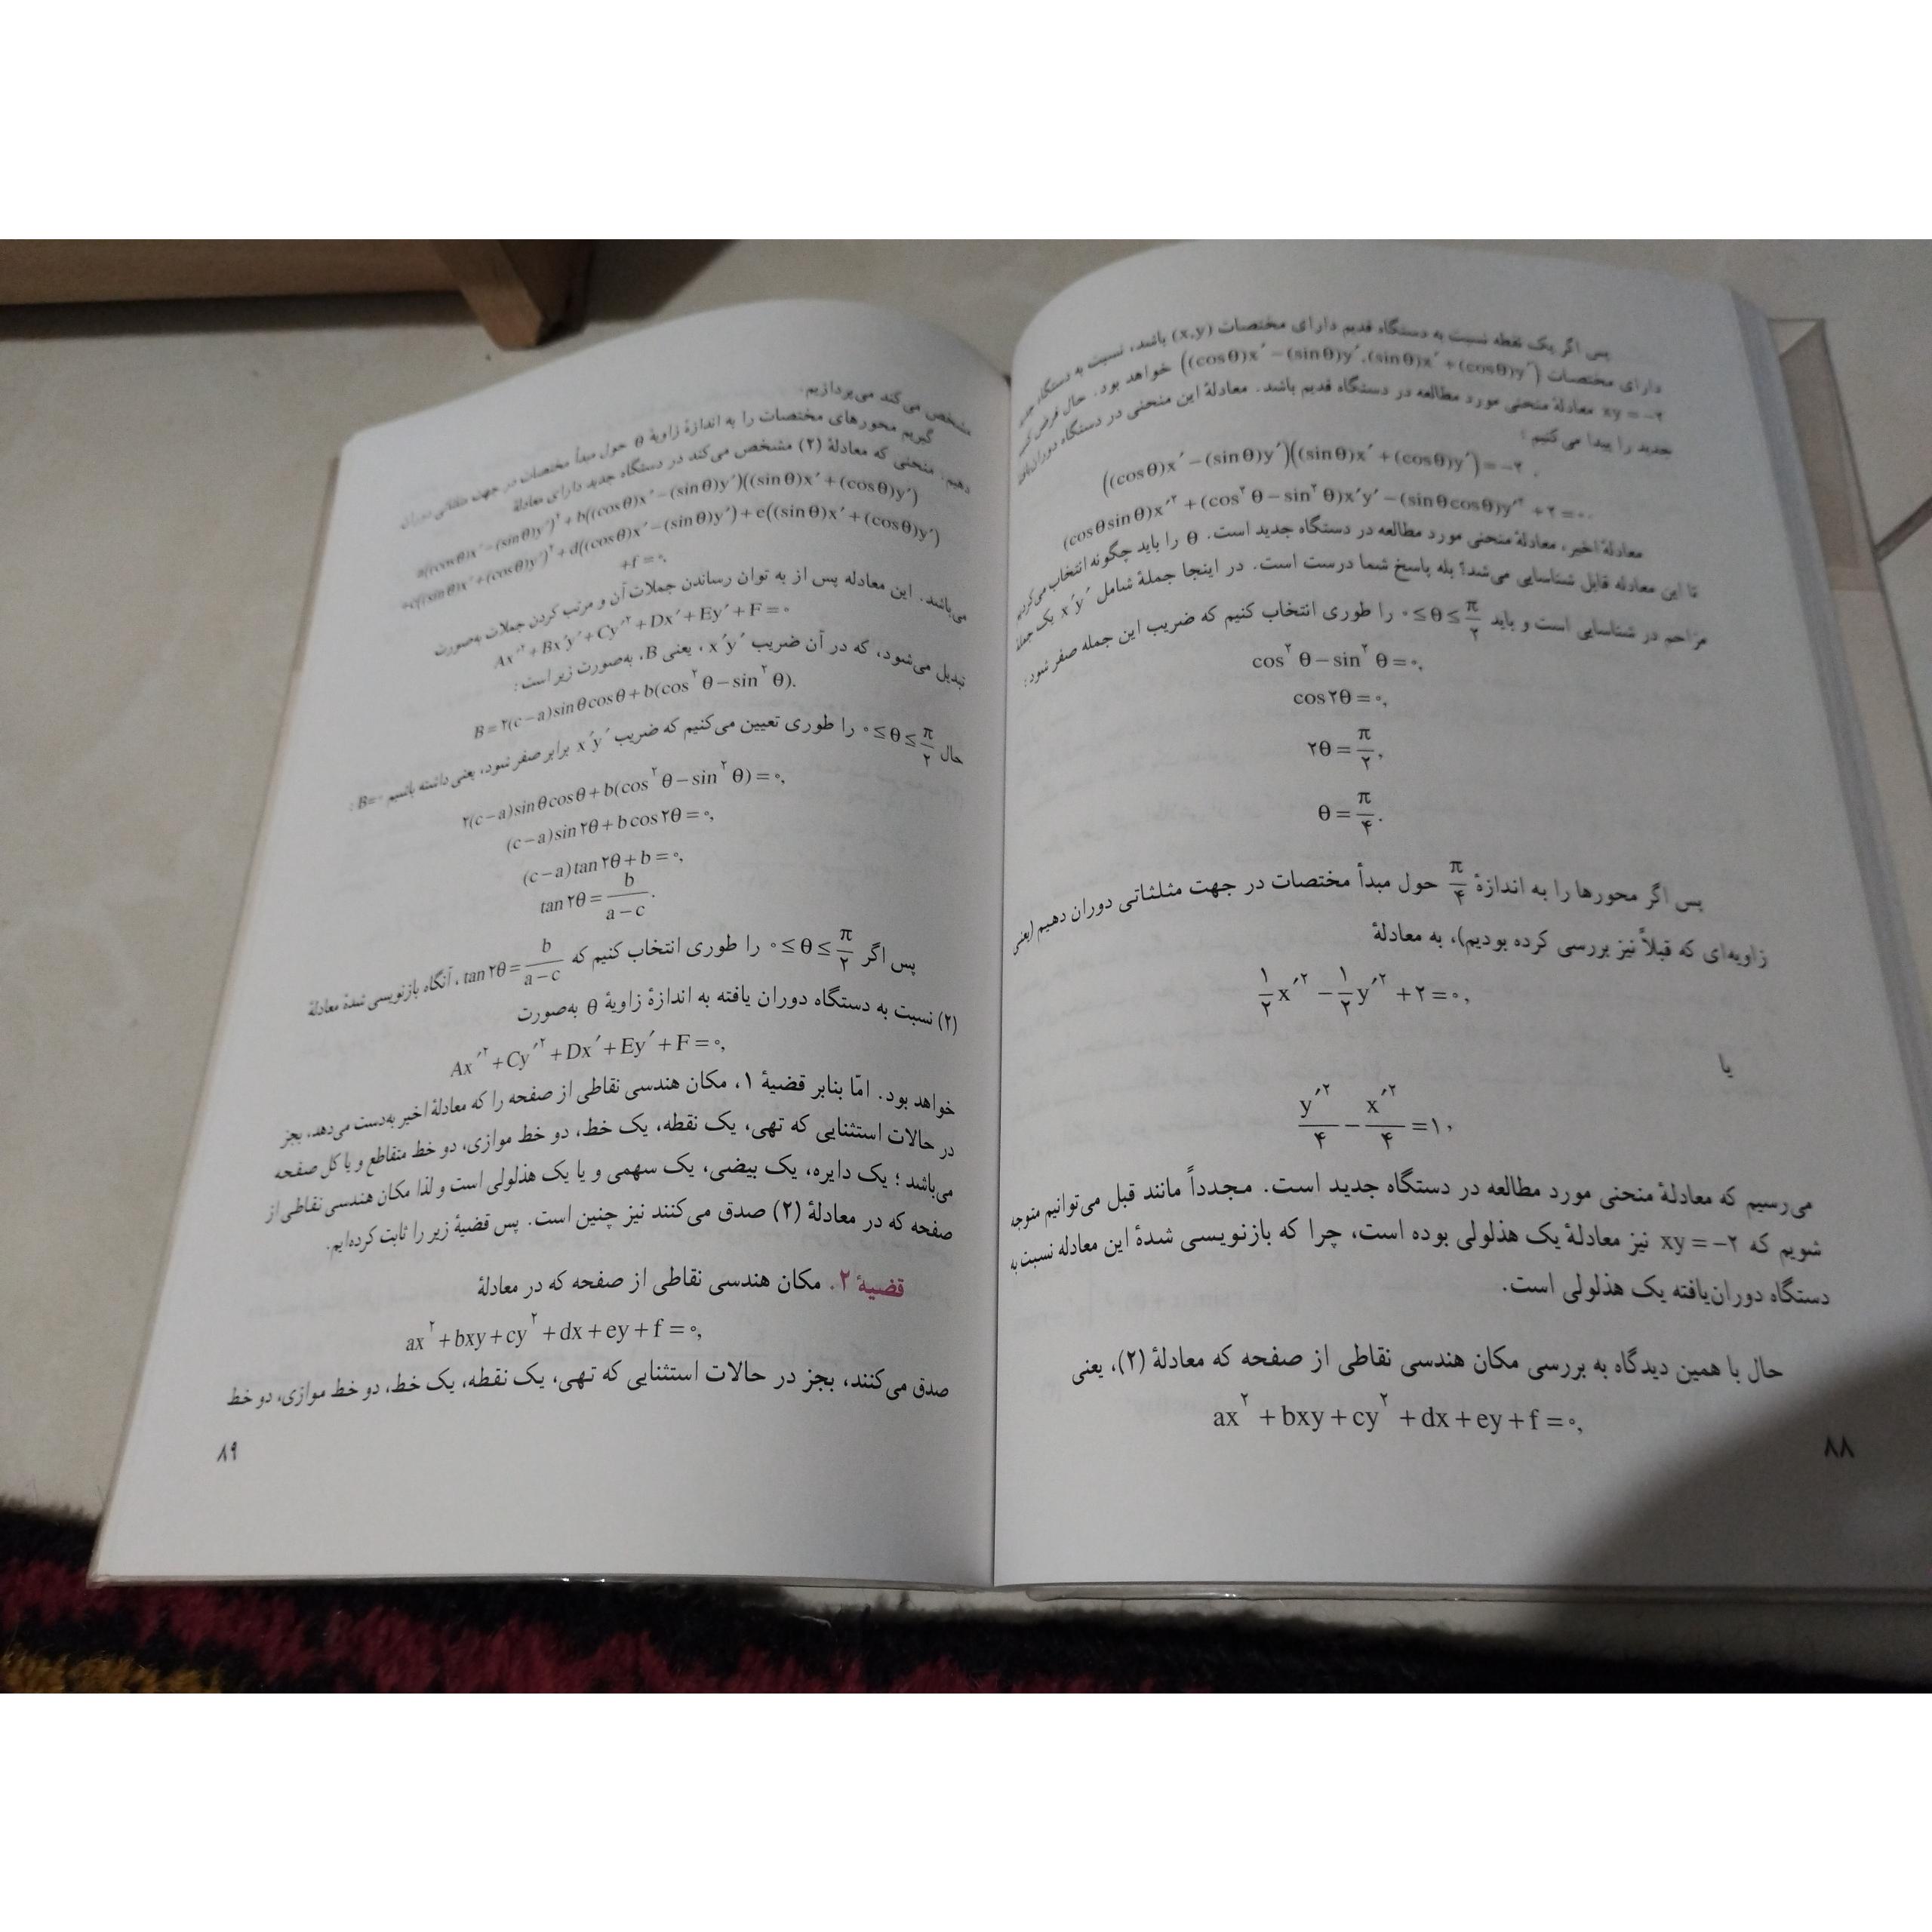 پس اگر یک نقطه نسبت به دستگاه قدیم دارای مختصات (x,y) باشد، نسبت به دستگاه جدید
دارای مختصات ((cosθ)x′−(sinθ)y′,(sinθ)x′+(cosθ)y′) خواهد بود. حال فرض کنید
xy=−۲ معادلهٔ منحنی مورد مطالعه در دستگاه قدیم باشد. معادلهٔ این منحنی در دستگاه دوران‌یافتهٔ
جدید را پیدا می‌کنیم :
((cosθ)x′−(sinθ)y′)((sinθ)x′+(cosθ)y′)=−۲,
(cosθsinθ)x′²+(cos²θ−sin²θ)x′y′−(sinθcosθ)y′²+۲=۰.
معادلهٔ اخیر، معادلهٔ منحنی مورد مطالعه در دستگاه جدید است. θ را باید چگونه انتخاب می‌کردیم
تا این معادله قابل شناسایی می‌شد؟ بله پاسخ شما درست است. در اینجا جملهٔ شامل x′y′ یک جملهٔ
مزاحم در شناسایی است و باید ۰≤θ≤π/۲ را طوری انتخاب کنیم که ضریب این جمله صفر شود :
cos²θ−sin²θ=۰,
cos۲θ=۰,
۲θ=π/۲,
θ=π/۴.
پس اگر محورها را به اندازهٔ π/۴ حول مبدأ مختصات در جهت مثلثاتی دوران دهیم (یعنی
زاویه‌ای که قبلاً نیز بررسی کرده بودیم)، به معادلهٔ
۱/۲x′²−۱/۲y′²+۲=۰,
یا
y′²/۴−x′²/۴=۱,
می‌رسیم که معادلهٔ منحنی مورد مطالعه در دستگاه جدید است. مجدداً مانند قبل می‌توانیم متوجه
شویم که xy=−۲ نیز معادلهٔ یک هذلولی بوده است، چرا که بازنویسی شدهٔ این معادله نسبت به
دستگاه دوران‌یافته یک هذلولی است.
حال با همین دیدگاه به بررسی مکان هندسی نقاطی از صفحه که معادلهٔ (۲)، یعنی
ax²+bxy+cy²+dx+ey+f=۰,
۸۸
مشخص می‌کند می‌پردازیم.
گیریم محورهای مختصات را به اندازهٔ زاویهٔ θ حول مبدأ مختصات در جهت مثلثاتی دوران
دهیم. منحنی که معادلهٔ (۲) مشخص می‌کند در دستگاه جدید دارای معادلهٔ
a((cosθ)x′−(sinθ)y′)²+b((cosθ)x′−(sinθ)y′)((sinθ)x′+(cosθ)y′)
+c((sinθ)x′+(cosθ)y′)²+d((cosθ)x′−(sinθ)y′)+e((sinθ)x′+(cosθ)y′)
+f=۰,
می‌باشد. این معادله پس از به توان رساندن جملات آن و مرتب کردن جملات به‌صورت
Ax′²+Bx′y′+Cy′²+Dx′+Ey′+F=۰
تبدیل می‌شود، که در آن ضریب x′y′، یعنی B، به‌صورت زیر است :
B=۲(c−a)sinθcosθ+b(cos²θ−sin²θ).
حال ۰≤θ≤π/۲ را طوری تعیین می‌کنیم که ضریب x′y′ برابر صفر شود، یعنی داشته باشیم B=۰ :
۲(c−a)sinθcosθ+b(cos²θ−sin²θ)=۰,
(c−a)sin۲θ+bcos۲θ=۰,
(c−a)tan۲θ+b=۰,
tan۲θ=b/(a−c).
پس اگر ۰≤θ≤π/۲ را طوری انتخاب کنیم که tan۲θ=b/(a−c)، آنگاه بازنویسی شدهٔ معادلهٔ
(۲) نسبت به دستگاه دوران یافته به اندازهٔ زاویهٔ θ به‌صورت
Ax′²+Cy′²+Dx′+Ey′+F=۰,
خواهد بود. امّا بنابر قضیهٔ ۱، مکان هندسی نقاطی از صفحه را که معادلهٔ اخیر به‌دست می‌دهد، بجز
در حالات استثنایی که تهی، یک نقطه، یک خط، دو خط موازی، دو خط متقاطع و یا کل صفحه
می‌باشد ؛ یک دایره، یک بیضی، یک سهمی و یا یک هذلولی است و لذا مکان هندسی نقاطی از
صفحه که در معادلهٔ (۲) صدق می‌کنند نیز چنین است. پس قضیهٔ زیر را ثابت کرده‌ایم.
قضیهٔ ۲. مکان هندسی نقاطی از صفحه که در معادلهٔ
ax²+bxy+cy²+dx+ey+f=۰,
صدق می‌کنند، بجز در حالات استثنایی که تهی، یک نقطه، یک خط، دو خط موازی، دو خط
۸۹